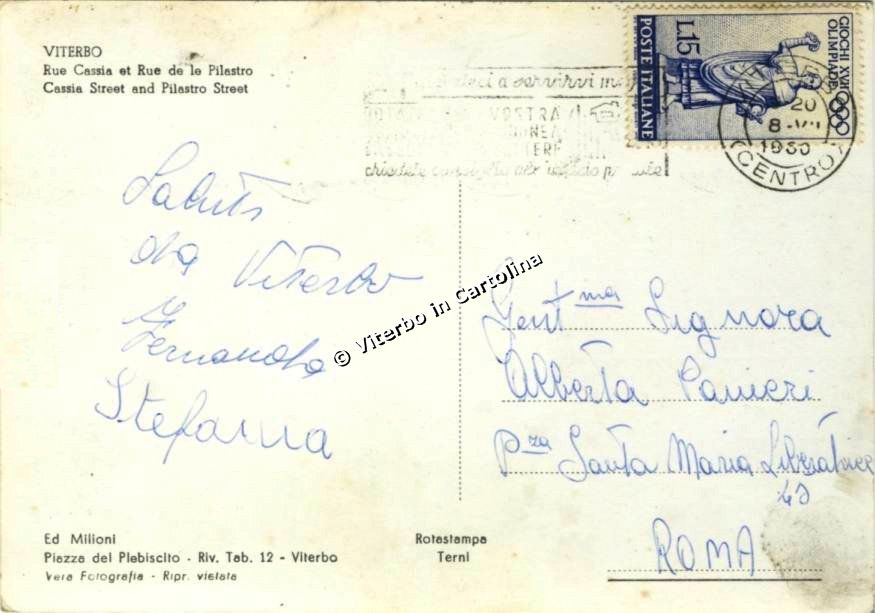 VITERBO
Rue Cassia et Rue de le Pilastro
Cassia Street and Pilastro Street
a servirvi
VOSTRA
GIOCHI XVII
OLIMPIADE
L.15
POSTE ITALIANE
20
8-VII
1960
(CENTRO)
Saluti
da Viterbo
Fernanda
Stefania
© Viterbo in Cartolina
Gent.ma Signora
Alberta Panieri
P.za Santa Maria Liberatrice
ROMA
Ed Milioni
Piazza del Plebiscito - Riv. Tab. 12 - Viterbo
Vera Fotografia - Ripr. vietata
Rotastampa
Terni